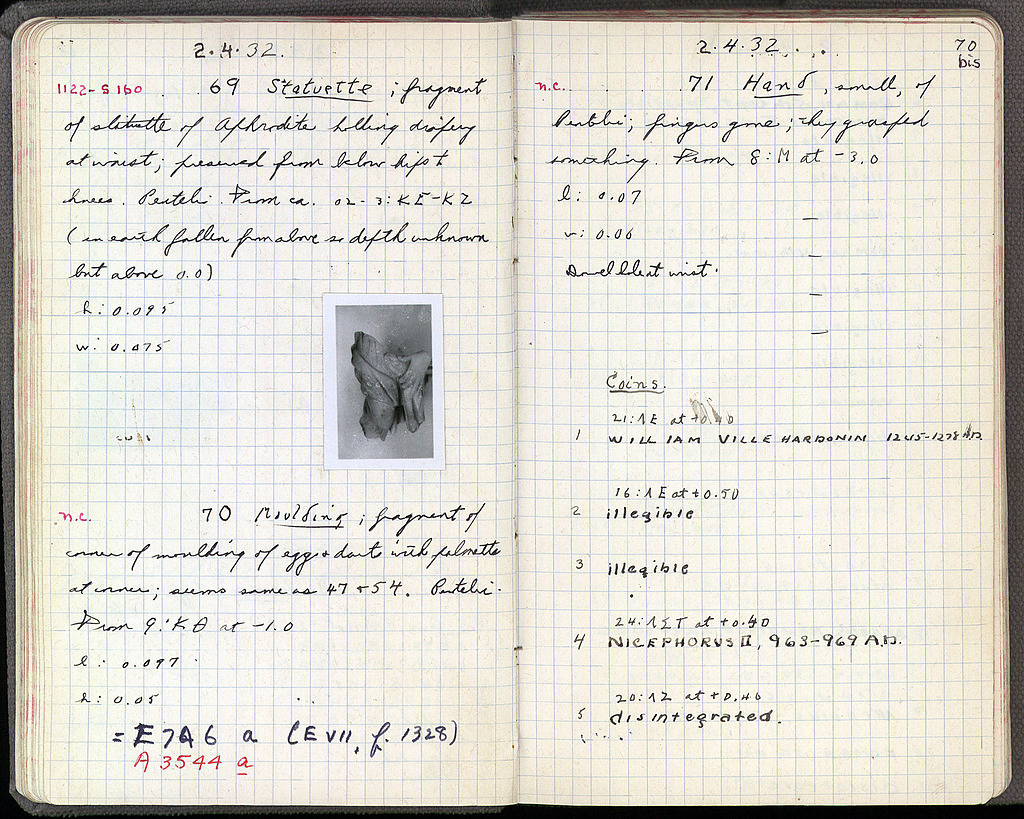 2.4.32.
1122-S 160 69 Statuette ; fragment
of statuette of Aphrodite holding drapery
at waist; preserved from below hips to
knees. Pentelic. From ca. 02-3:KE-KZ
(in earth fallen from above so depth unknown
but above 0.0)
h: 0.095
w: 0.075
n.c. 70 Moulding ; fragment of
corner of moulding of egg & dart with palmette
at corner; seems same as 47 + 54. Pentelic.
From 9:KΘ at -1.0
l: 0.097
h: 0.05
= E 746 a (E VII, f. 1328)
A 3544 a
2.4.32.
70
bis
n.c. 71 Hand, small, of
Pentelic; fingers gone; they grasped
something. From 8:M at -3.0
l: 0.07
w: 0.06
Dowel hole at wrist.
Coins.
21:ΛE at +0.40
1 WILLIAM VILLEHARDONIN 1245-1278 A.D.
16:ΛE at +0.50
2 illegible
3 illegible
24:ΛΣΤ at +0.40
4 NICEPHORUS II, 963-969 A.D.
20:ΛZ at +0.40
5 disintegrated.